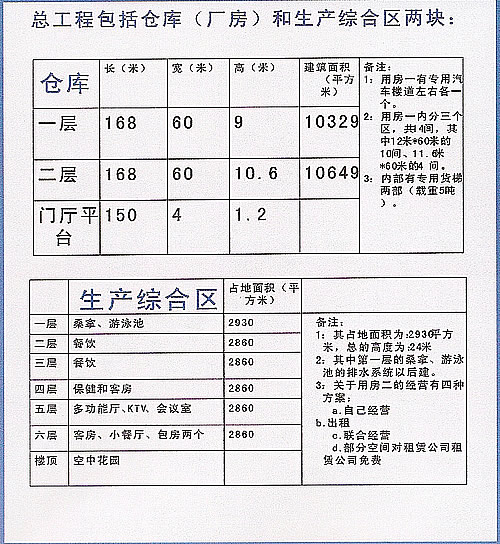 总工程包括仓库（厂房）和生产综合区两块：
仓库 长（米） 宽（米） 高（米） 建筑面积（平方米）
一层 168 60 9 10329
二层 168 60 10.6 10649
门厅平台 150 4 1.2
备注：
1：用房一有专用汽
车楼道左右各一
个。
2：用房一内分三个
区，共14间，其
中12米*60米的
10间、11.6米
*60米的4 间。
3：内部有专用货梯
两部（载重5吨
）。
生产综合区 占地面积（平方米）
一层 桑拿、游泳池 2930
二层 餐饮 2860
三层 餐饮 2860
四层 保健和客房 2860
五层 多功能厅、KTV、会议室 2860
六层 客房、小餐厅、包房两个 2860
楼顶 空中花园
备注：
1：其占地面积为:2930平方
米，总的高度为:24米
2：其中第一层的桑拿、游泳
池的排水系统以后建。
3：关于用房二的经营有四种
方案：
a.自己经营
b.出租
c.联合经营
d.部分空间对租赁公司租
赁公司免费